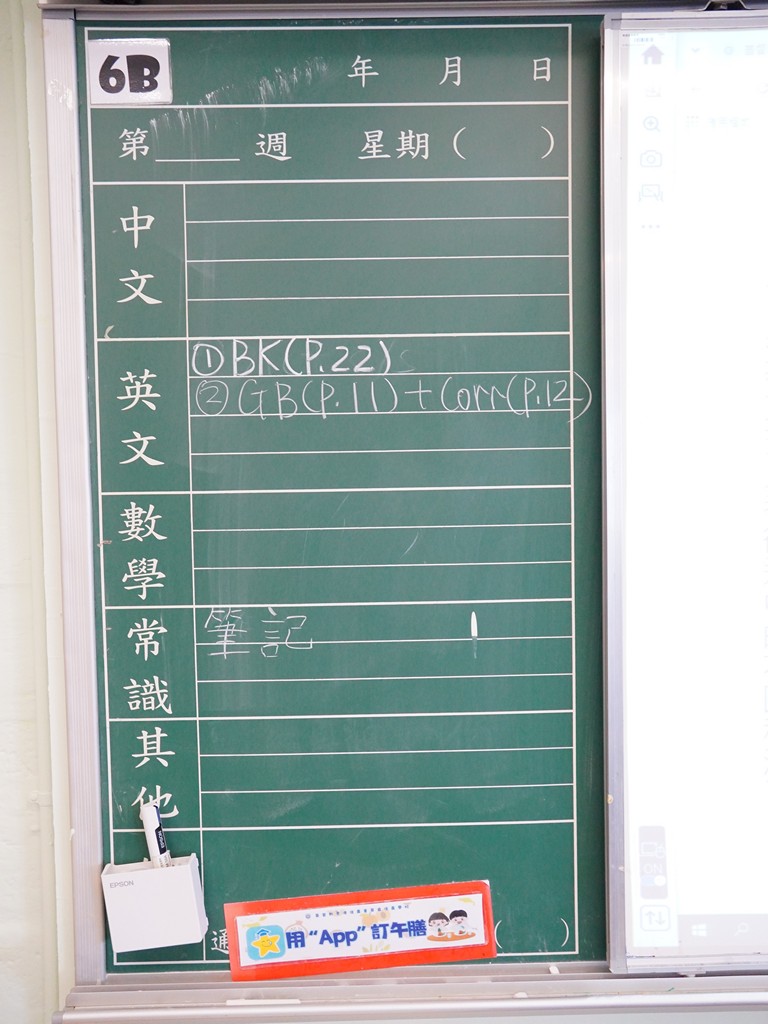 6B
年 月 日
第____週 星期( )
中文
英文
①BK(P.22)
②GB(P.11)+Corr(P.12)
數學
常識
筆記
其他
EPSON
通
( )
用“App”訂午膳